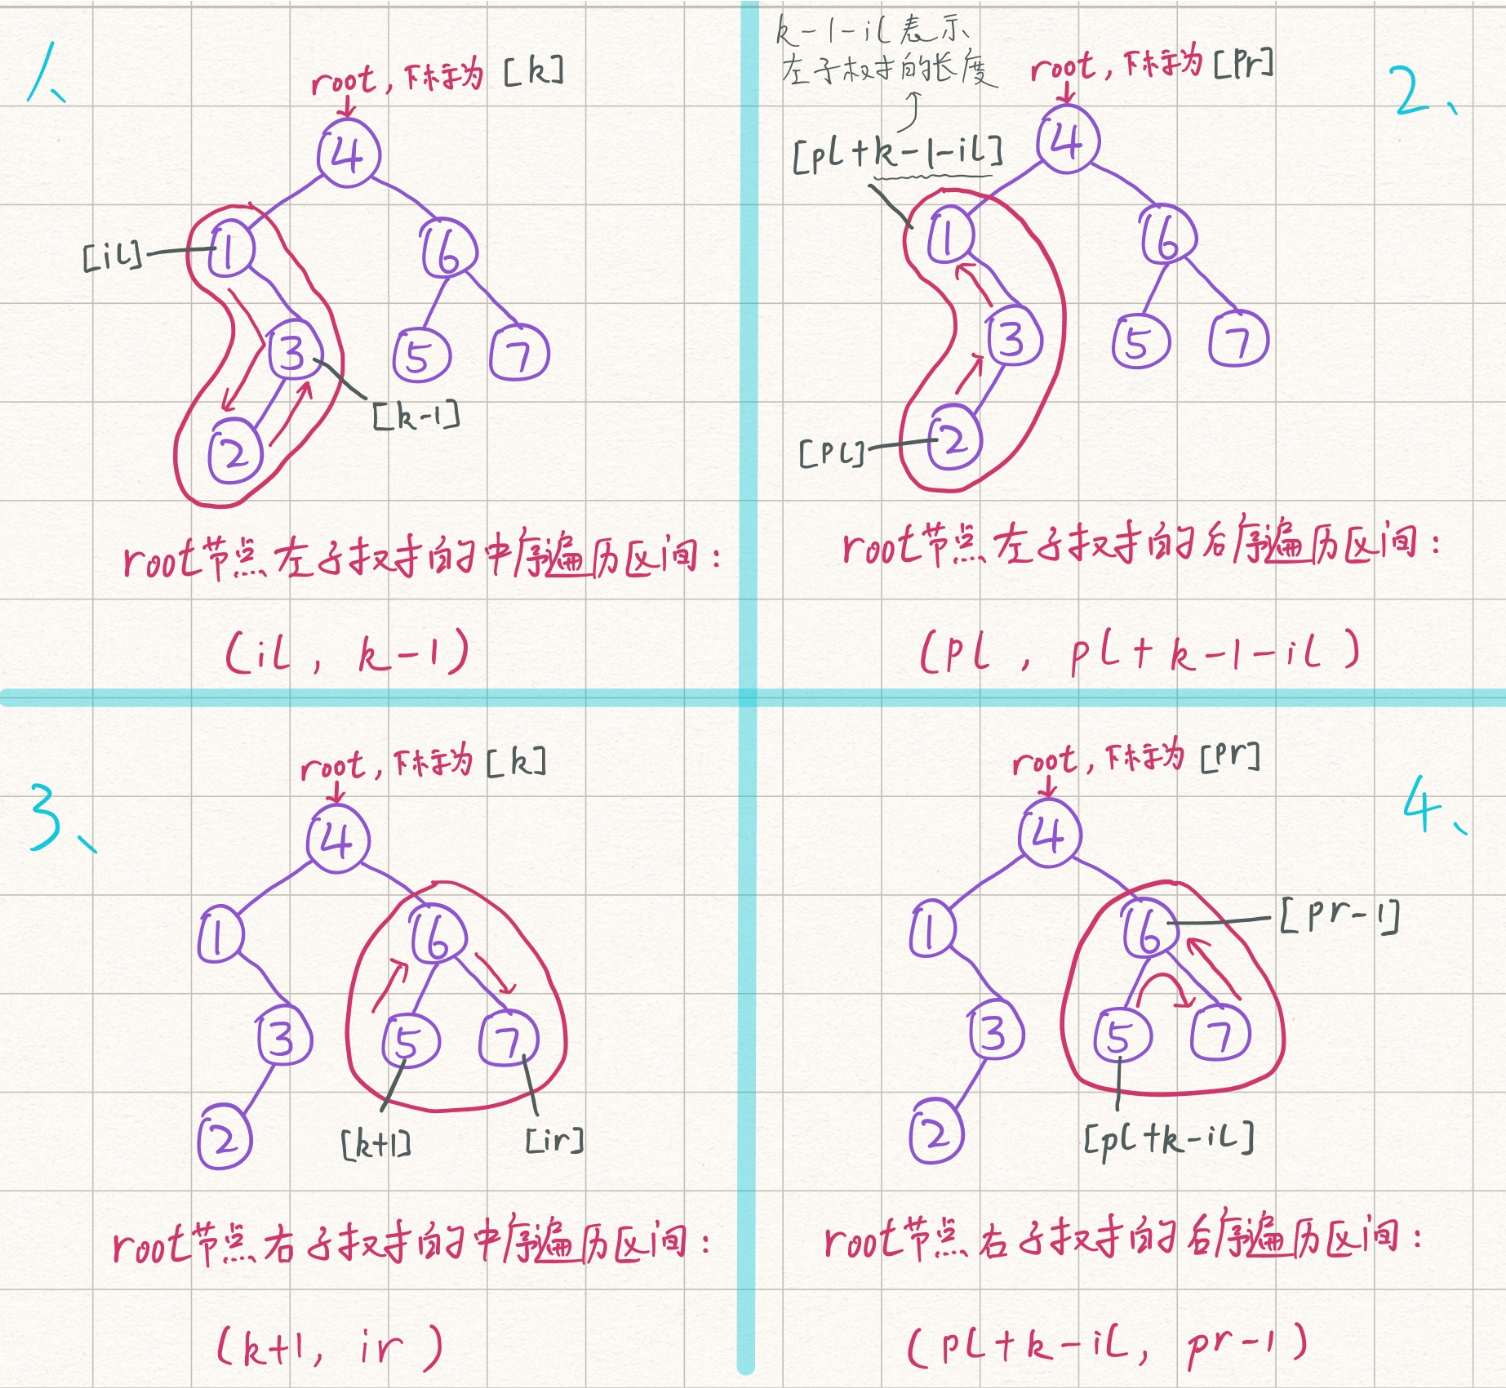 1、
root,下标为 [k]
4
[il]
1
6
3
5
7
[k-1]
2
root节点左子权才的中序遍历区间:
(il, k-1)
2、
k-1-il表示
左子权才的长度
root,下标为 [pr]
[pl+k-1-il]
4
1
6
3
5
7
[pl]
2
root节点左子权才的后序遍历区间:
(pl, pl+k-1-il)
3、
root,下标为 [k]
4
1
6
3
5
7
2
[k+1]
[ir]
root节点右子权才的中序遍历区间:
(k+1, ir)
4、
root,下标为 [pr]
4
1
6
[pr-1]
3
5
7
2
[pl+k-il]
root节点右子权才的后序遍历区间:
(pl+k-il, pr-1)